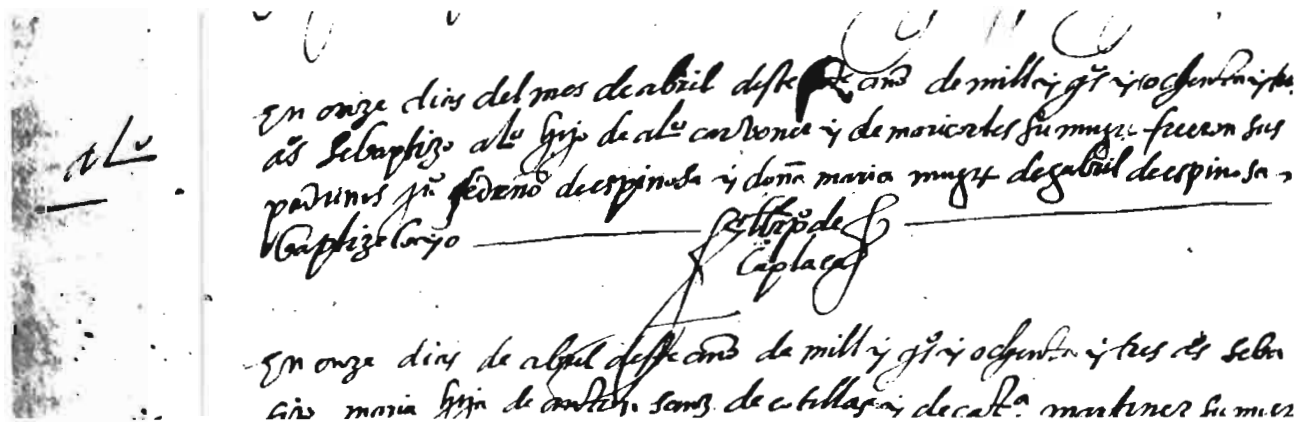 alº
En onze dias del mes de abril deste año de mill y qs y ochenta y tres
as se baptizo alº hijo de alº carbonel y de mari cortes su muger fueron sus
padrinos juº cedreño de espinosa y doña maria muger de gabriel de espinosa
baptizelo yo
El lldo pº de
la plaça
En onze dias de abril deste año de mill y qs y ochenta y tres as se bap
tizo maria hija de anton sanz de cotillas y de catª martinez su muger